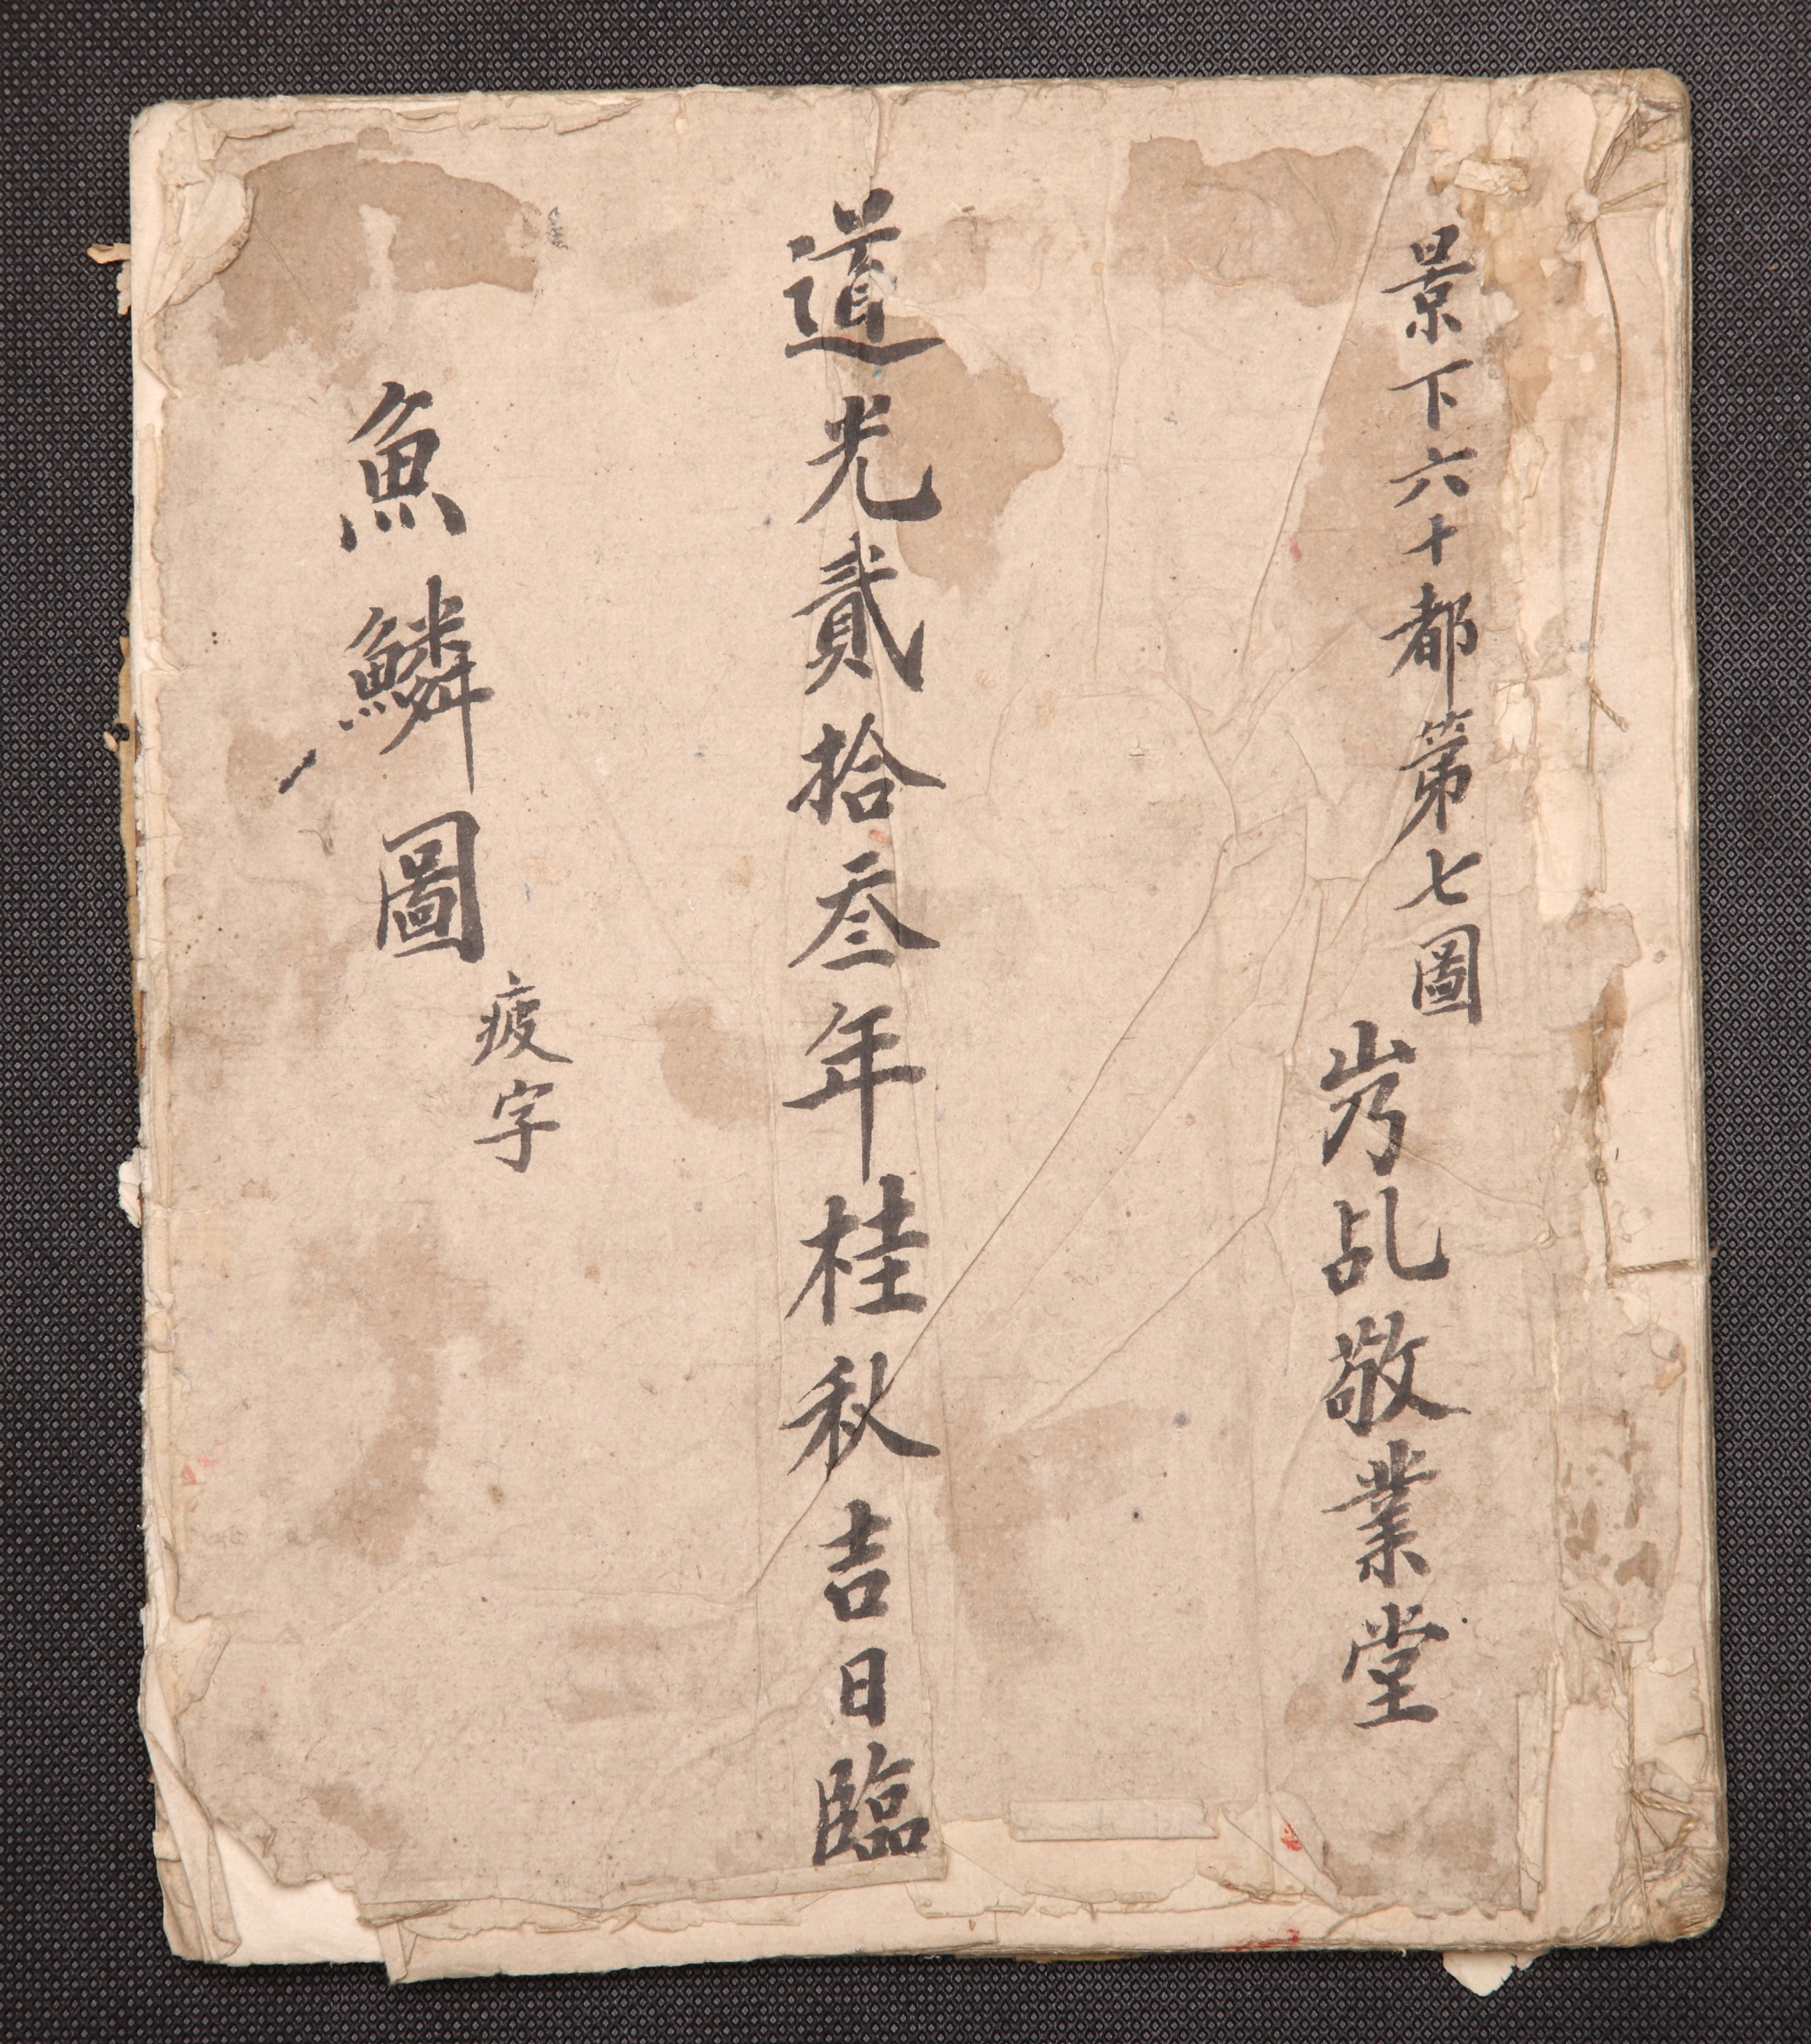 景下六十都第七圖
敬業堂
道光貳拾叁年桂秋吉日臨
魚鱗圖
疲字